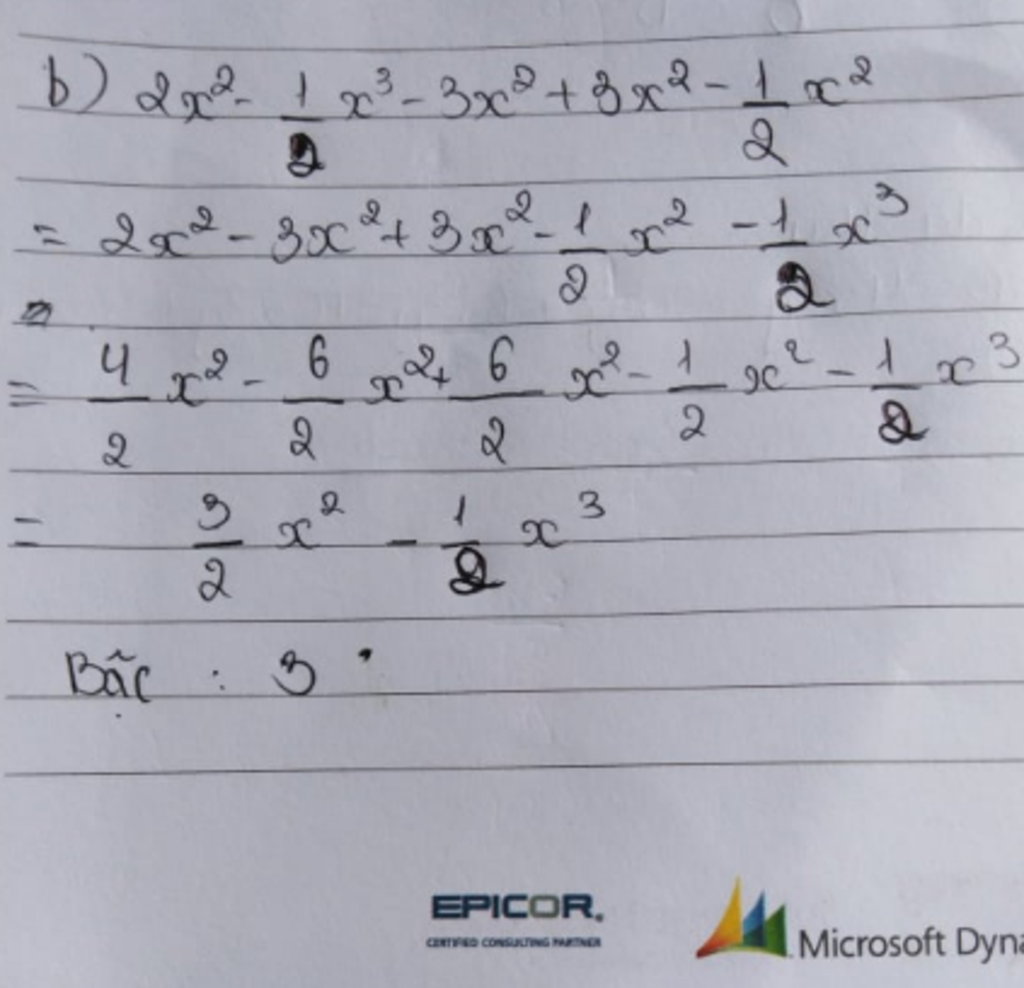 b) 2x² - 1/2 x³ - 3x² + 3x² - 1/2 x²
= 2x² - 3x² + 3x² - 1/2 x² - 1/2 x³
= 4/2 x² - 6/2 x² + 6/2 x² - 1/2 x² - 1/2 x³
= 3/2 x² - 1/2 x³
Bậc : 3
EPICOR.
CERTIFIED CONSULTING PARTNER
Microsoft Dyna